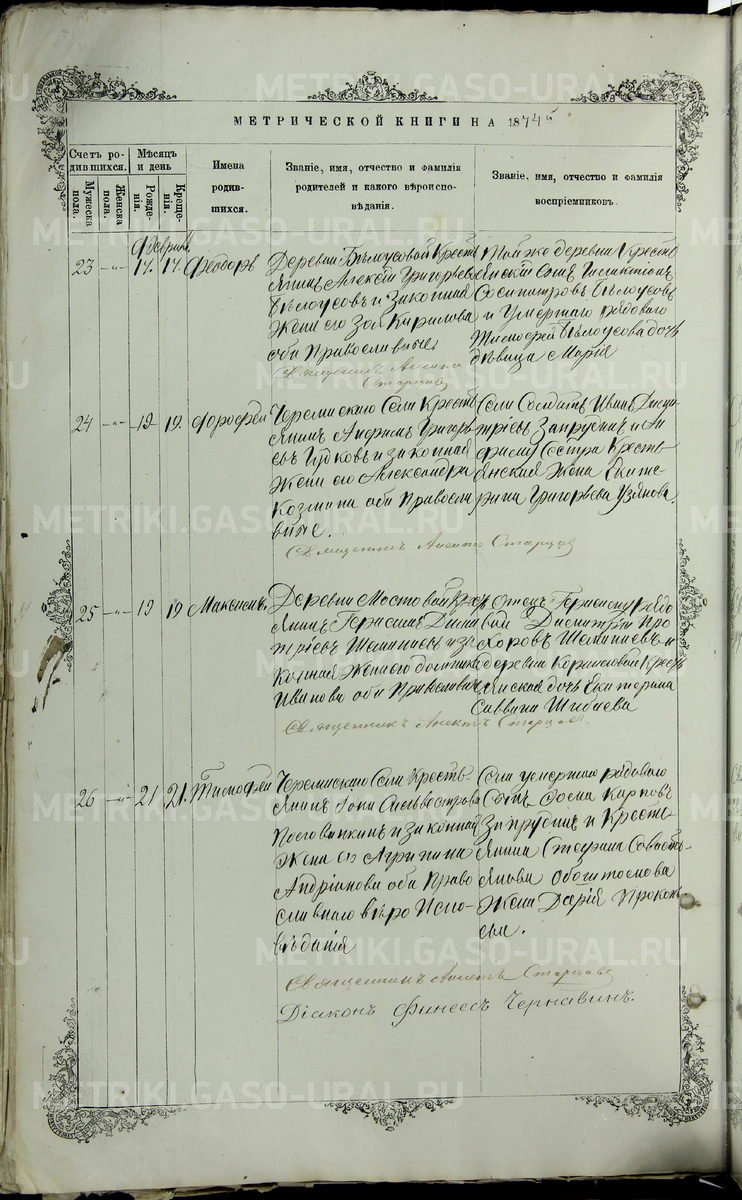 МЕТРИЧЕСКОЙ КНИГИ НА 1874й
Счетъ родившихся.
Мужеска пола.
Женска пола.
Мѣсяцъ и день
Рожденія.
Крещенія.
Имена родившихся.
Званіе, имя, отчество и фамилія родителей и какого вѣроисповѣданія.
Званіе, имя, отчество и фамилія воспріемниковъ.
Февраль
23 -„- 17. 17. Ѳеодоръ
Деревни Бѣлоусовой Кресть
янинъ Алексѣй Григорьевъ
Бѣлоусовъ и законная
жена его Зоя Кирилова
оба Православные
Священникъ
Старцевъ
Той же деревни Кресть
янскій сынъ
Бѣлоусовъ
и умершаго рядоваго
Тимофея Бѣлоусова дочь
дѣвица Марія
24 -„- 19. 19. Дорофей
Черемисскаго Села Кресть
янинъ Григорь
евъ и законная
жена его Александра
Козмина оба Правосла
вные.
Священникъ Старцевъ
Села Солдатъ Иванъ Дми
тріевъ Запрудинъ и
сестра Кресть
янская жена Екате
рина Григорьева Узянова.
25 -„- 19 19 Максимъ
Деревни Мостовой Крест
янинъ Герасимъ Дими
тріевъ и за
конная жена его Домника
Иванова оба Православн
Священникъ Старцевъ.
отецъ рядо
вой Димитрій Про
хоровъ и
деревни Крест
янская дочь Екатерина
Саввина Шибаева
26 -„- 21 21. Тимофей
Черемисскаго Села Кресть
янинъ Іона Сильвестровъ
и законная
жена его Агрипина
Андріанова оба Право
славнаго вѣро Испо
вѣданія
Священникъ Старцевъ
Діаконъ Финеесъ Чернавинъ.
Села умершаго рядоваго
сынъ Фома Карповъ
Запрудинъ и Кресть
янина Стефана Савасть
янова
жена Дарія Прокопь
ева.
METRIKI.GASO-URAL.RU